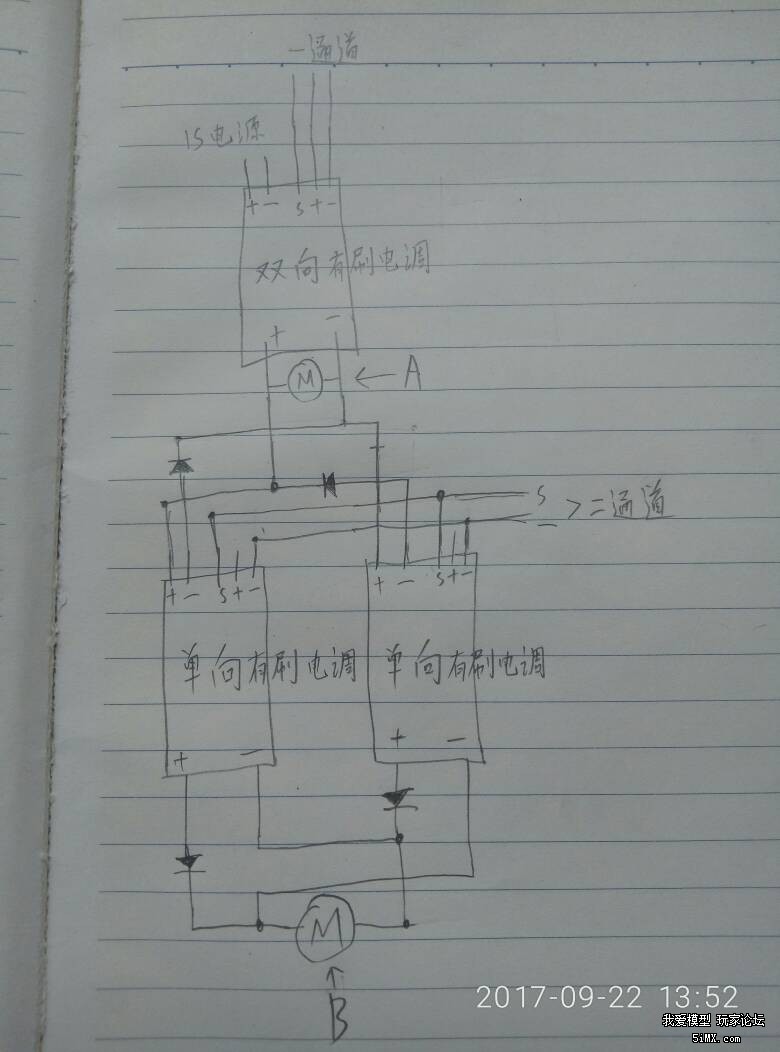 一通道
1S电源
+ - S + -
双向有刷电调
+ -
M ← A
S
- > 二通道
+ - S + -
+ - S + -
单向有刷电调
单向有刷电调
+ -
+ -
M
↑
B
2017-09-22 13:52
我爱模型 玩家论坛
5iMX.com